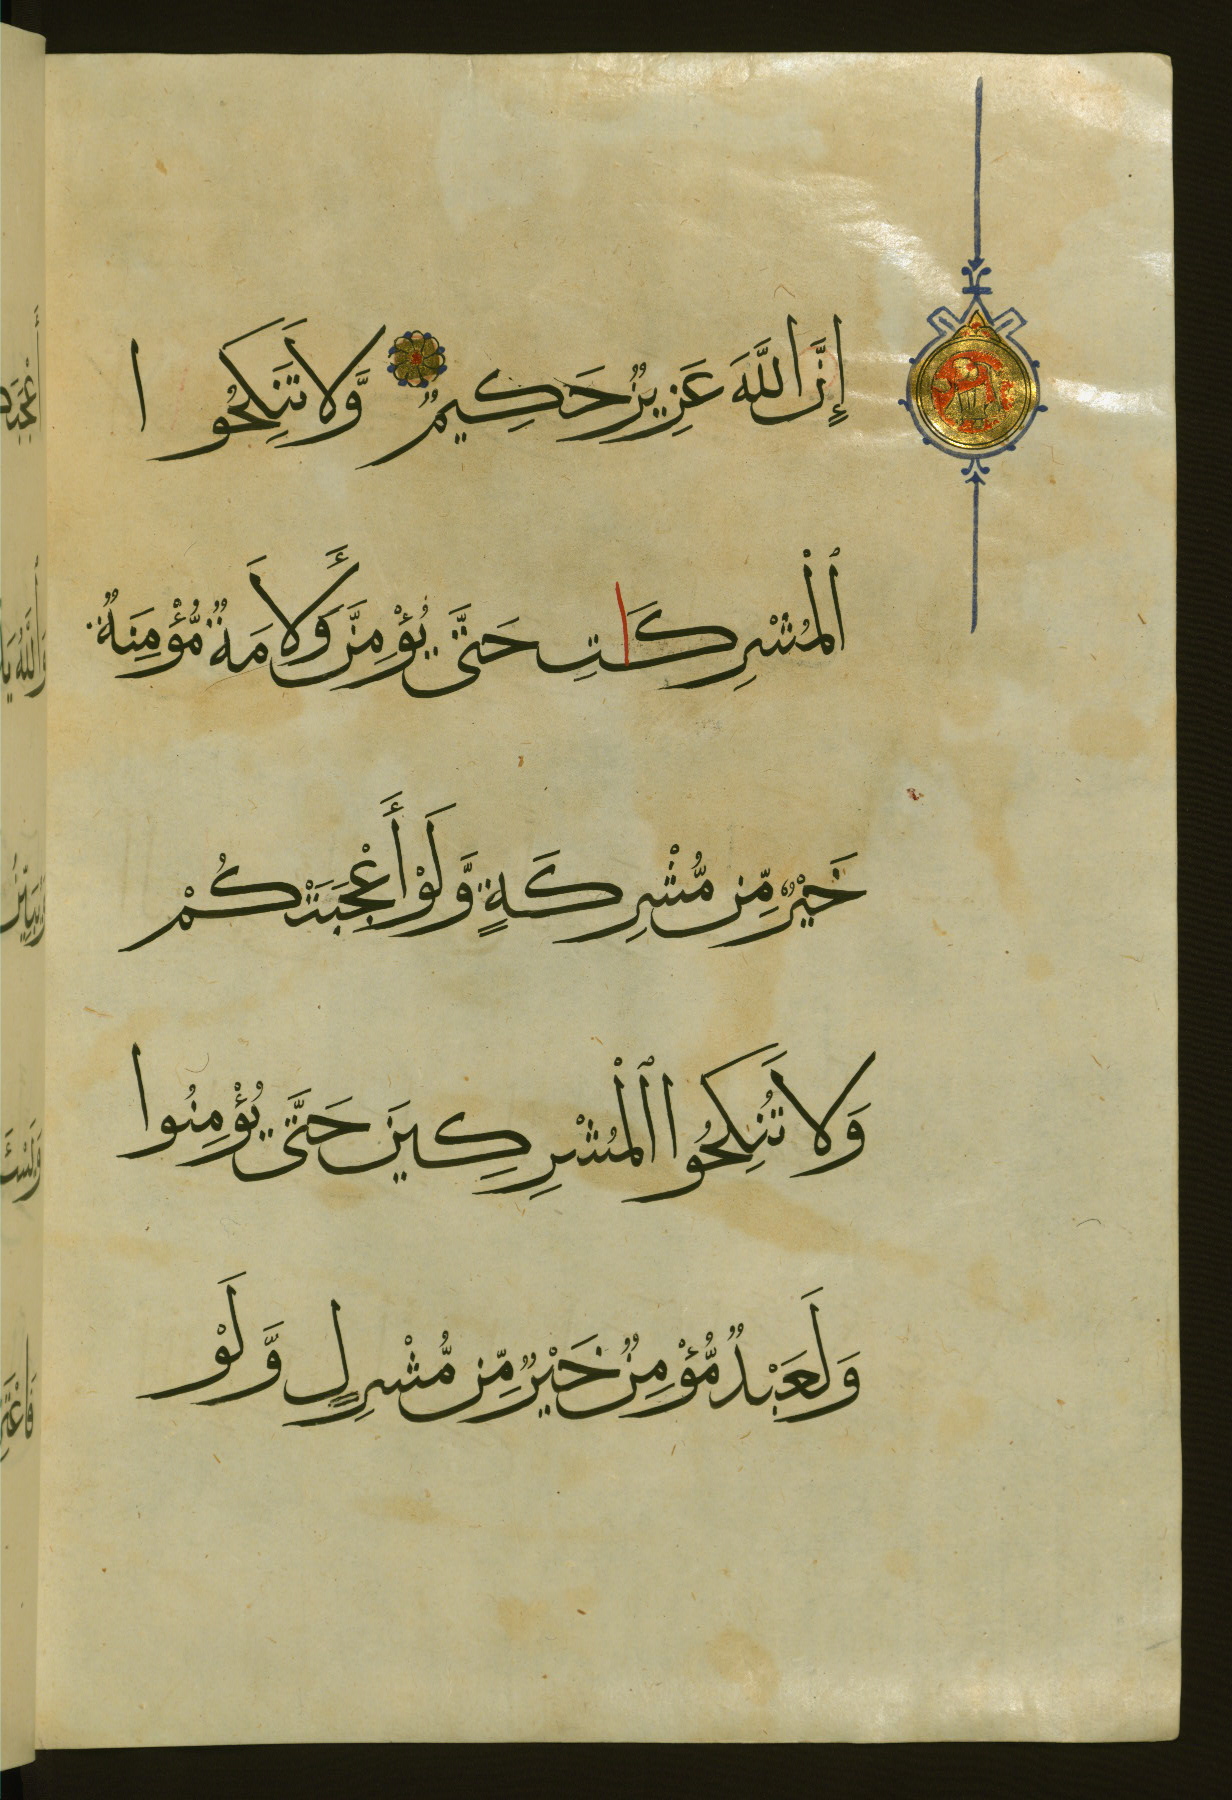 إِنَّ اللَّهَ عَزِيزٌ حَكِيمٌ وَّلَا تَنكِحُوا
ٱلْمُشْرِكَاتِ حَتَّى يُؤْمِنَّ وَلَأَمَةٌ مُّؤْمِنَةٌ
خَيْرٌ مِّن مُّشْرِكَةٍ وَّلَوْ أَعْجَبَتْكُمْ
وَلَا تُنكِحُوا ٱلْمُشْرِكِينَ حَتَّى يُؤْمِنُوا
وَلَعَبْدٌ مُّؤْمِنٌ خَيْرٌ مِّن مُّشْرِكٍ وَّلَوْ